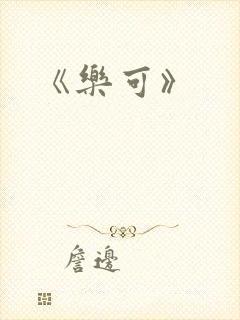 《樂可》
詹邊